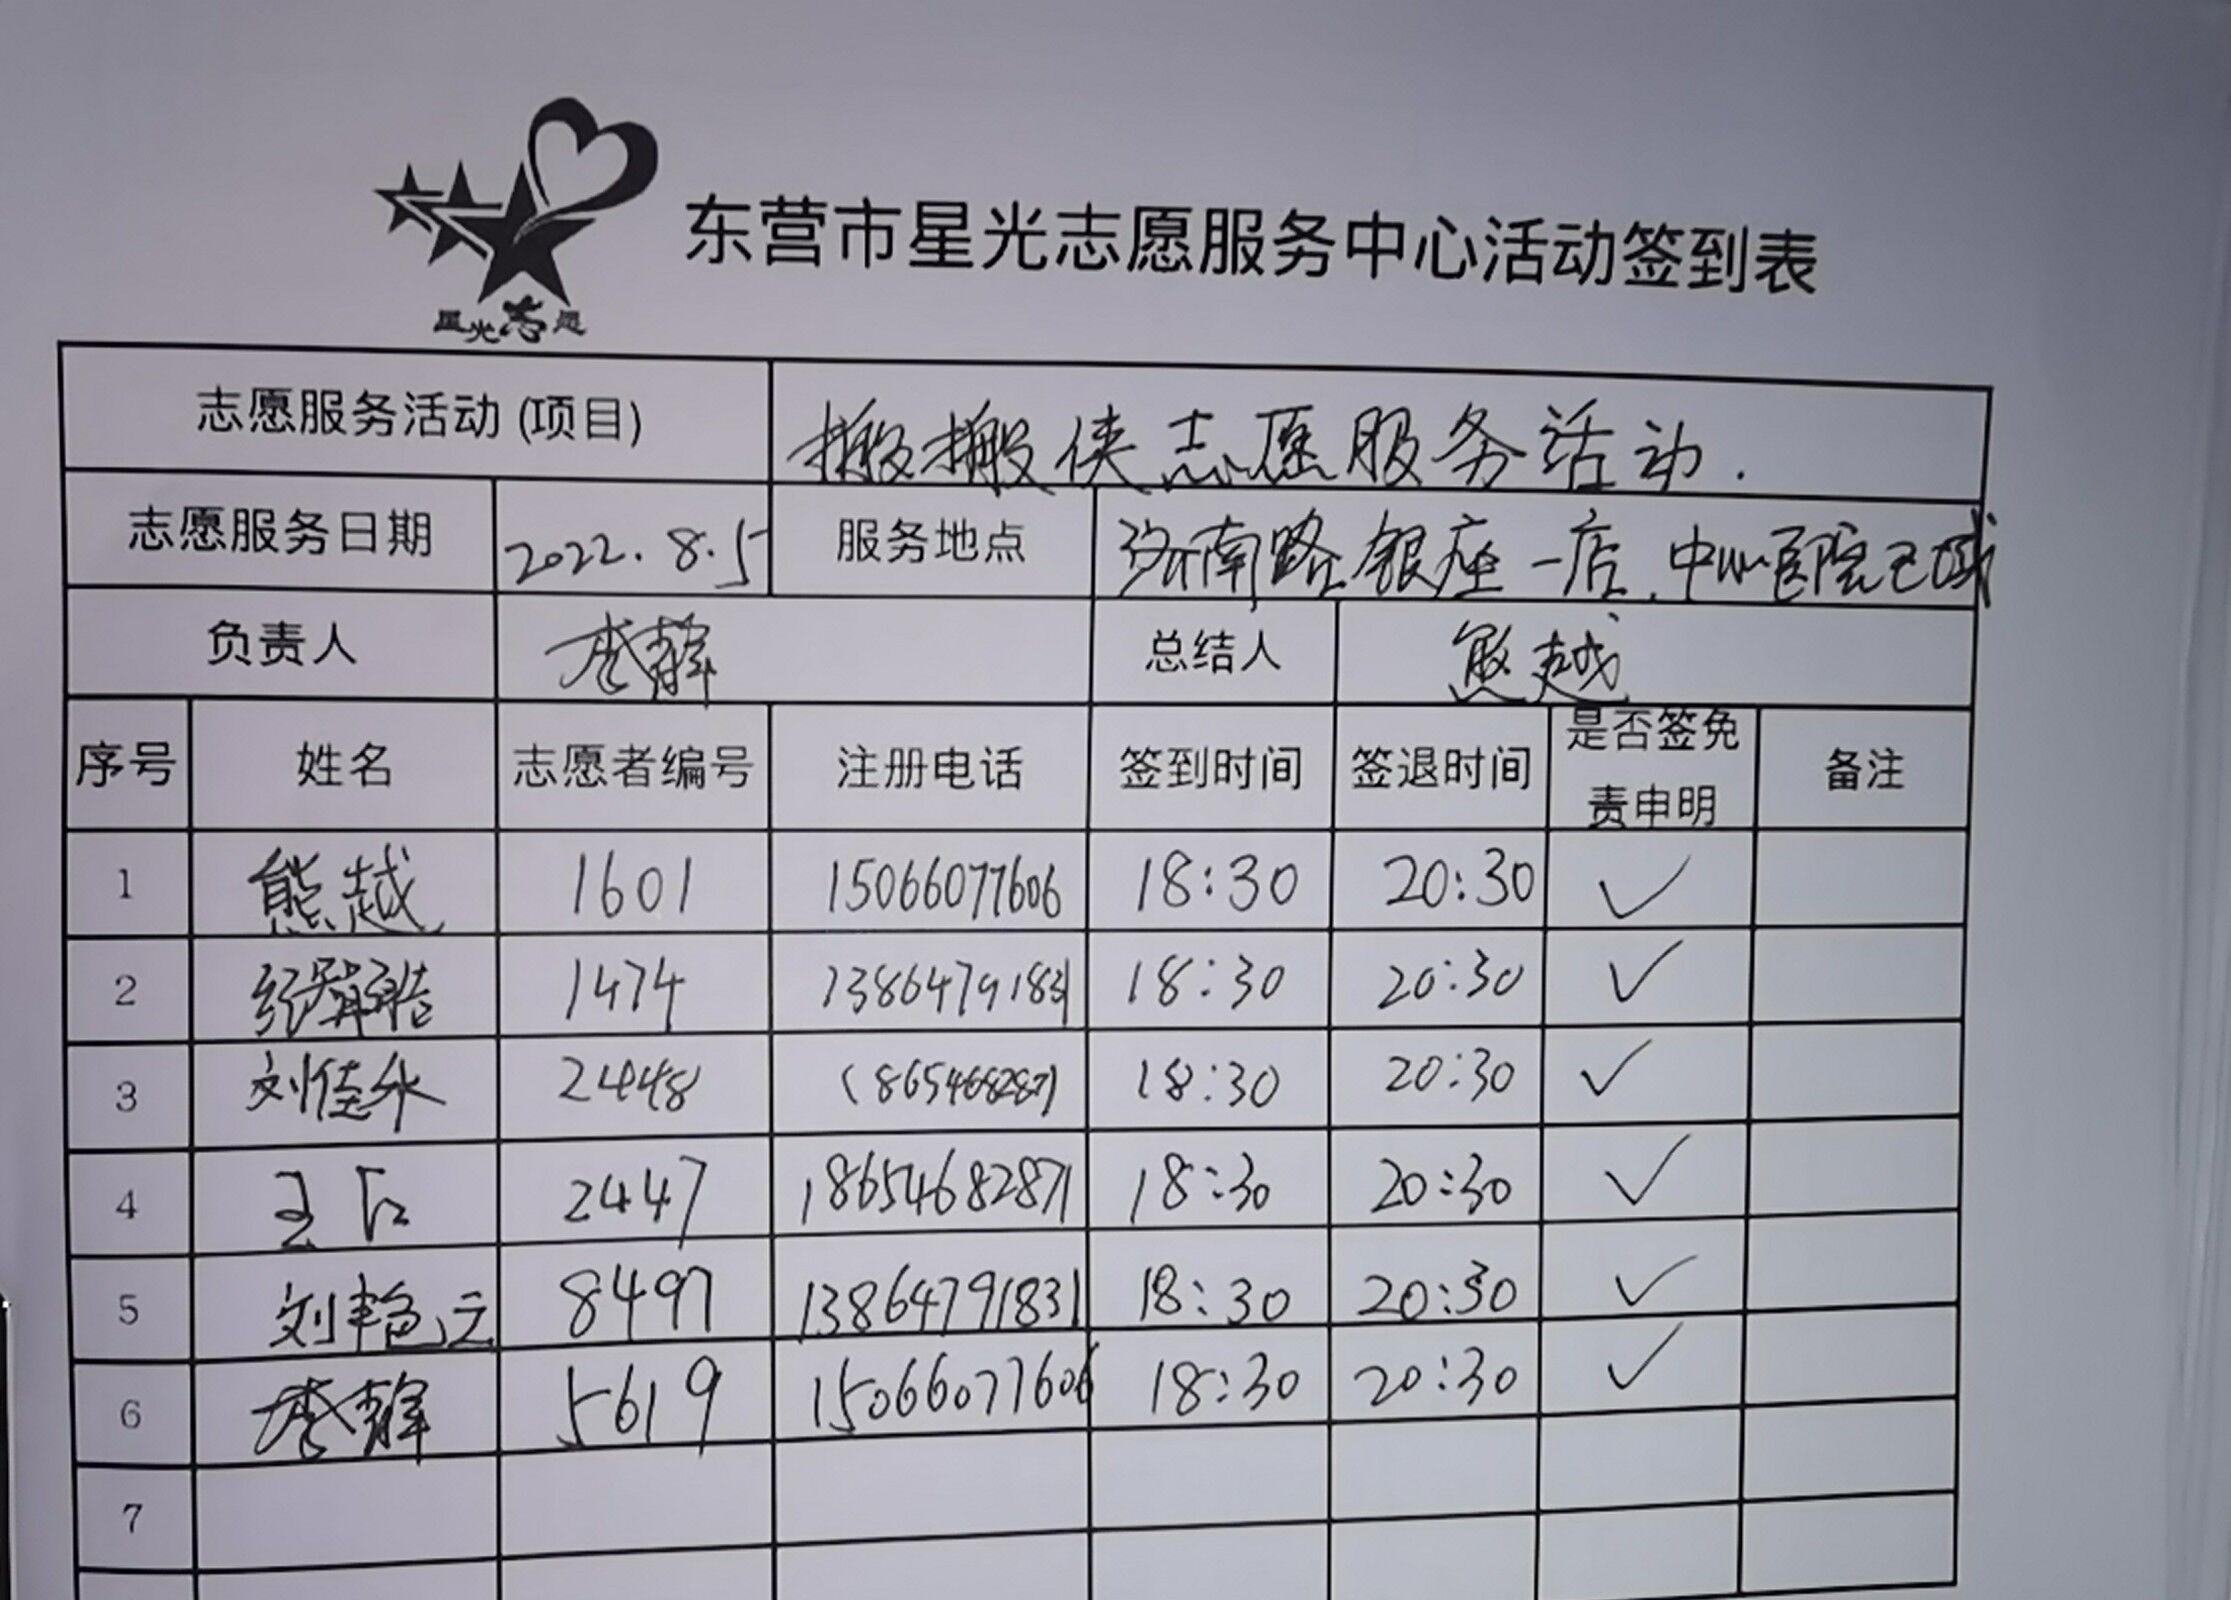 东营市星光志愿服务中心活动签到表
星光志愿
志愿服务活动(项目) 搬搬侠志愿服务活动.
志愿服务日期 2022.8.5 服务地点 济南路银座一店、中心医院区域
负责人 李静 总结人 熊越
序号 姓名 志愿者编号 注册电话 签到时间 签退时间 是否签免责申明 备注
1 熊越 1601 15066077606 18:30 20:30 ✓
2 1474 13864791831 18:30 20:30 ✓
3 刘佳 2448 18654682871 18:30 20:30 ✓
4 王 2447 18654682871 18:30 20:30 ✓
5 刘艳云 8497 13864791831 18:30 20:30 ✓
6 李静 5619 15066077606 18:30 20:30 ✓
7